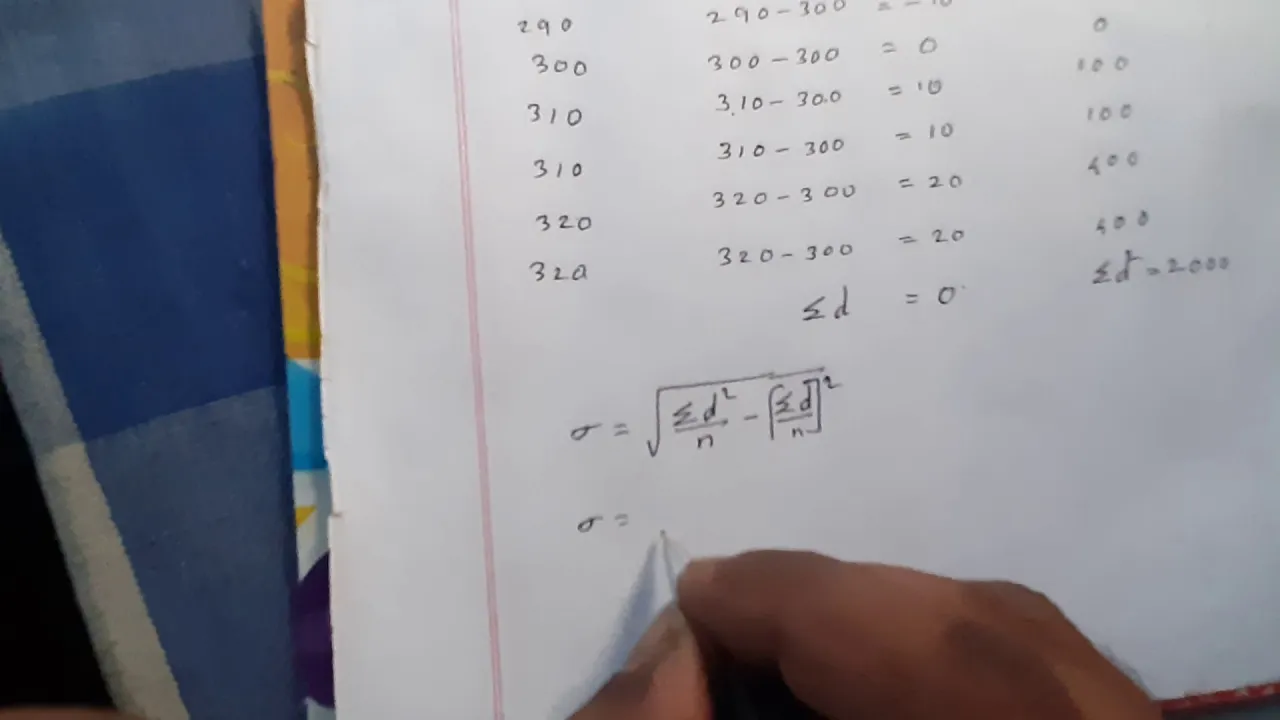 290 290-300 = -10 0
300 300-300 = 0 100
310 310-300 = 10 100
310 310-300 = 10 400
320 320-300 = 20 400
320 320-300 = 20 Σd² = 2000
Σd = 0
σ = √(Σd²/n - [Σd/n]²)
σ =